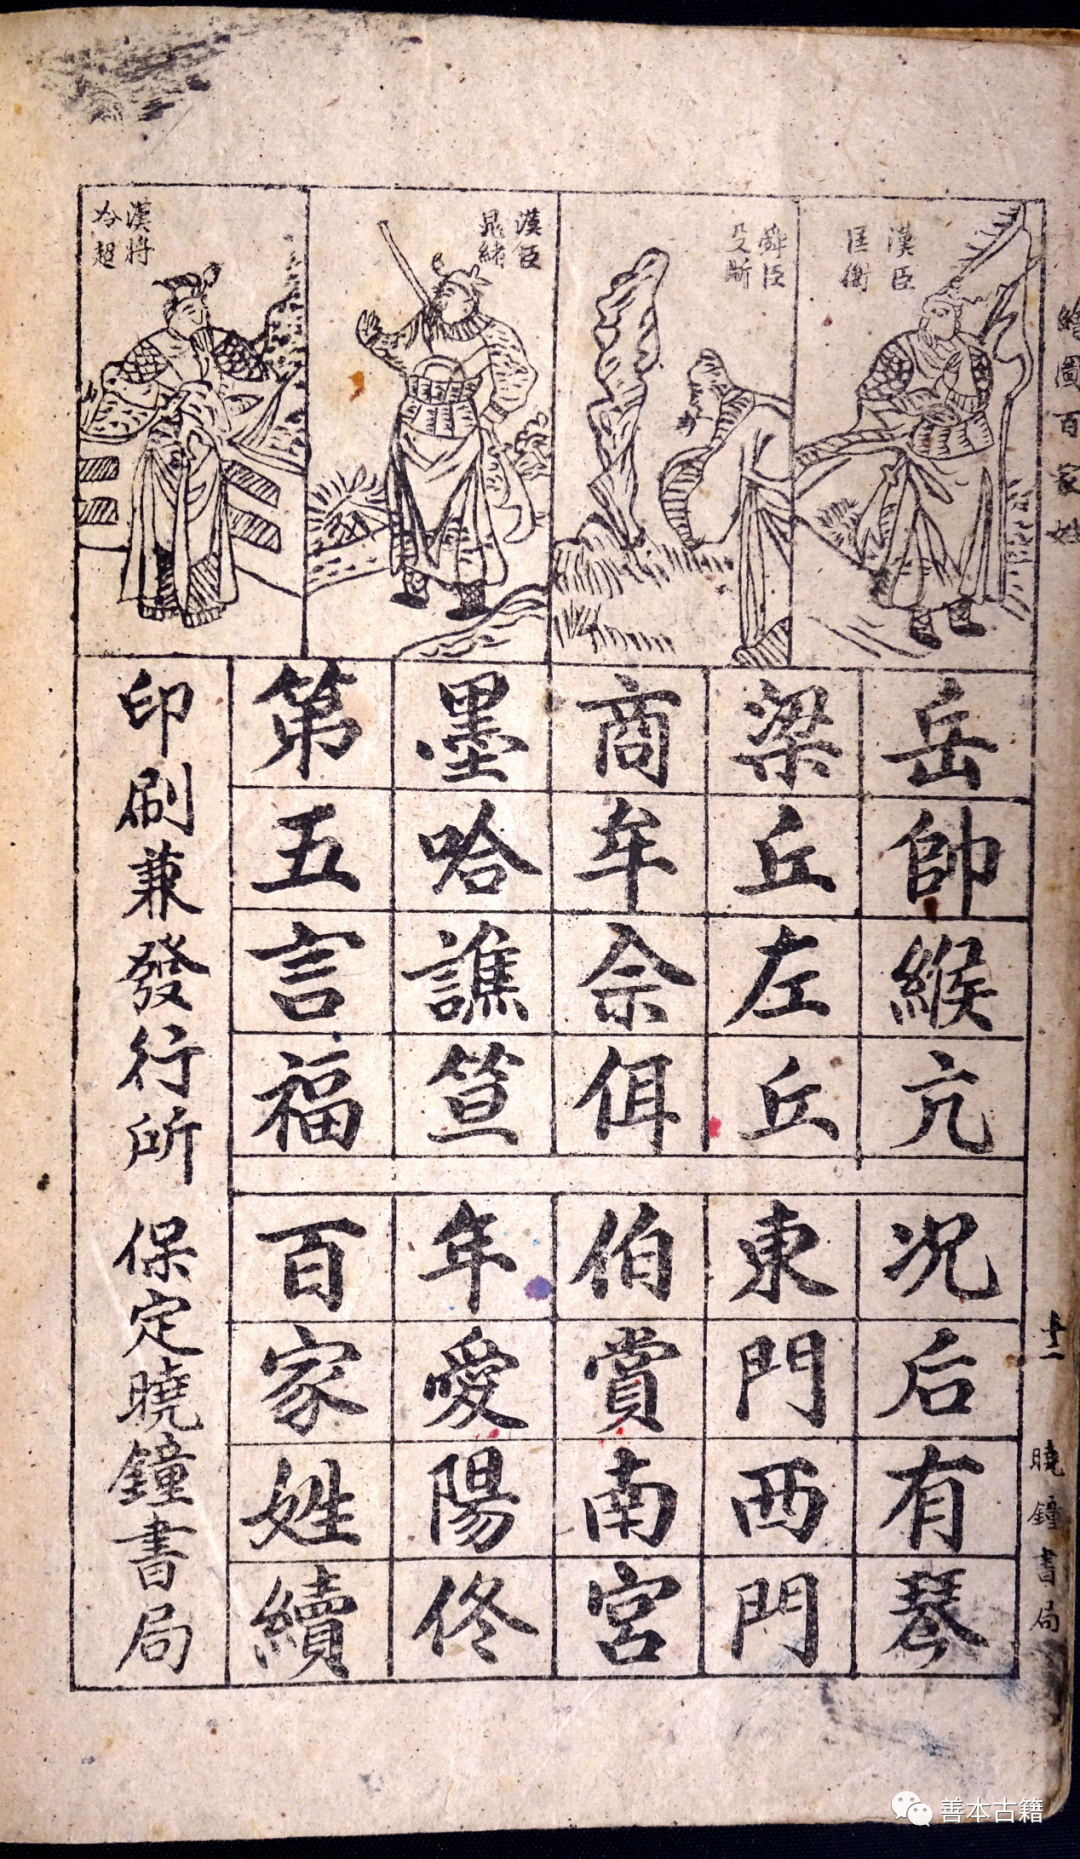 繪圖百家姓
曉鐘書局
漢臣
匡衡
舜臣
殳斨
漢臣
晁緒
漢將
岳帥緱亢
况后有琴
梁丘左丘
東門西門
商牟佘佴
伯賞南宮
墨哈譙笪
年愛陽佟
第五言福
百家姓續
印刷兼發行所 保定曉鐘書局
善本古籍